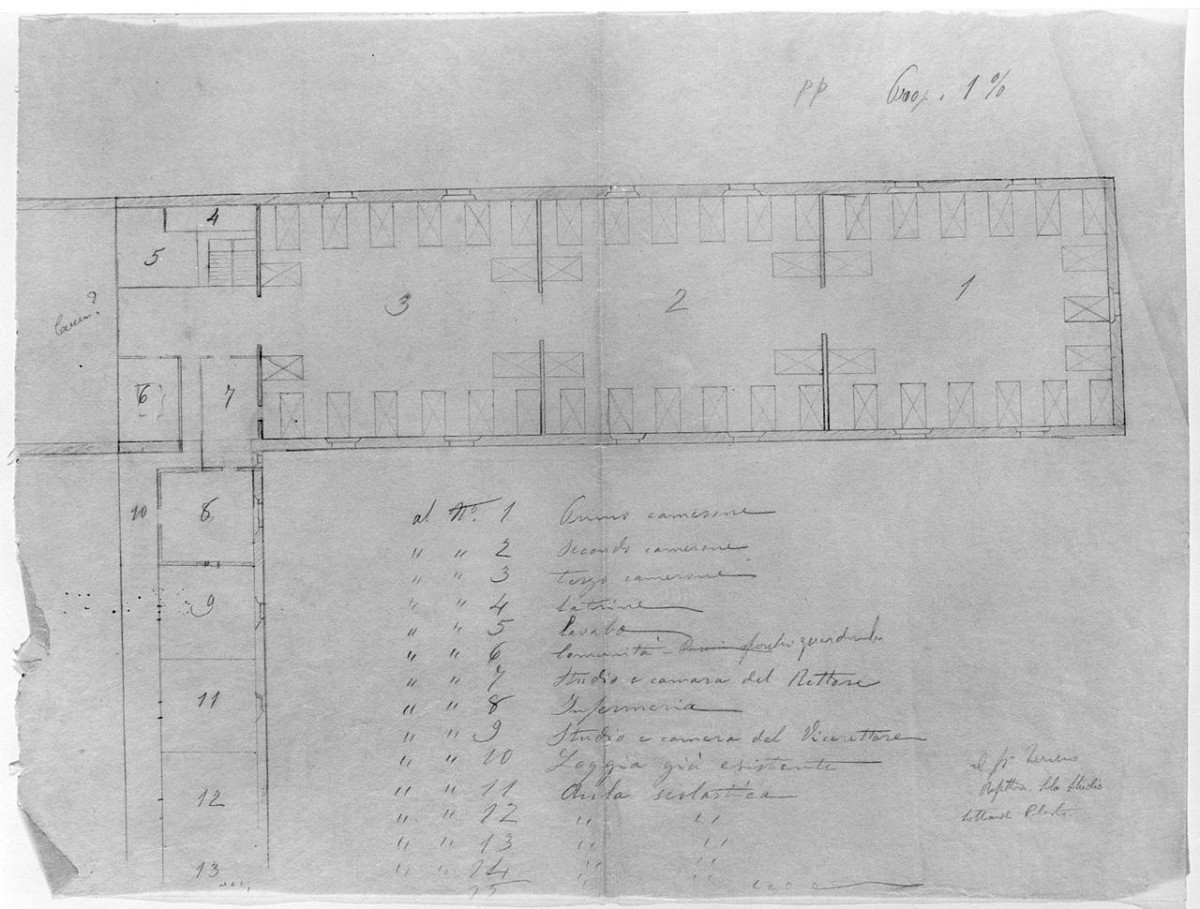 pp Prop. 1 %
4
5
3
2
1
6
7
10
8
9
11
12
13
al No. 1 Primo camerone
" " 2 Secondo camerone
" " 3 terzo camerone
" " 4 Latrine
" " 5 Lavabo
" " 6 Comunità -
" " 7 Studio e camara del Rettore
" " 8 Infermeria
" " 9 Studio e camera del Vicerettore
" " 10 Loggia già esistente
" " 11 Aula scolastica
" " 12 " "
" " 13 " "
" " 14 " "
15
al pº Terreno
Studio